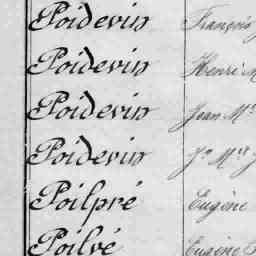 Poidevin François
Poidevin Henri M
Poidevin Jean Mie
Poidevin Jn Mie J
Poilpré Eugène
Poilvé Eugène F